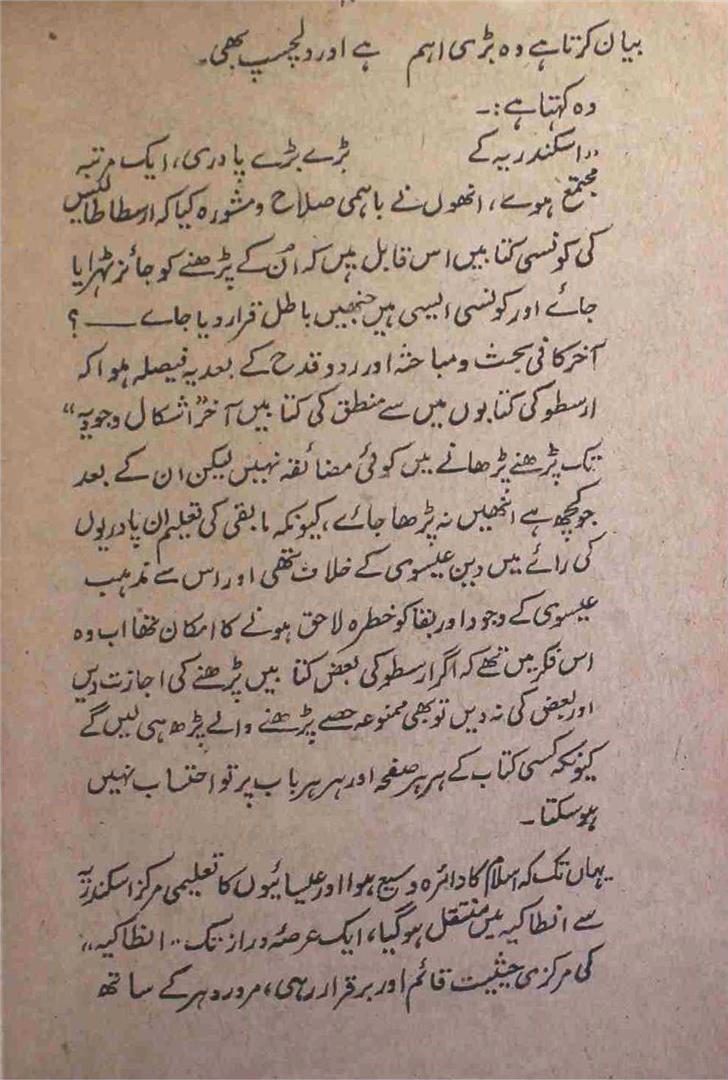 بیان کرتا ہے وہ بڑی اہم ہے اور دلچسپ بھی۔
وہ کہتا ہے:۔
”اسکندریہ کے بڑے بڑے پادری، ایک مرتبہ
مجتمع ہوے، انھوں نے باہمی صلاح و مشورہ کیا کہ ارسطاطالیس
کی کونسی کتابیں اس قابل ہیں کہ اُن کے پڑھنے کو جائز ٹہرایا
جائے اور کونسی ایسی ہیں جنھیں باطل قرار دیا جاے ـــــ ؟
آخر کافی بحث و مباحثہ اور رد و قدح کے بعد یہ فیصلہ ہوا کہ
ارسطو کی کتابوں میں سے منطق کی کتابیں آخر ”اشکال وجوبیہ“
تک پڑھنے پڑھانے میں کوئی مضائقہ نہیں لیکن ان کے بعد
جو کچھ ہے انھیں نہ پڑھا جائے، کیونکہ مابقی کی تعلیم ان پادریوں
کی رائے میں دین عیسوی کے خلاف تھی اور اس سے مذہب
عیسوی کے وجود اور بقا کو خطرہ لاحق ہونے کا امکان تھا اب وہ
اس فکر میں تھے کہ اگر ارسطو کی بعض کتابیں پڑھنے کی اجازت دیں
اور بعض کی نہ دیں تو بھی ممنوعہ حصے پڑھنے والے پڑھ ہی لیں گے
کیونکہ کسی کتاب کے ہر ہر صفحہ اور ہر ہر باب پر تو احتساب نہیں
ہوسکتا۔
یہاں تک کہ اسلام کا دائرہ وسیع ہوا اور عیسائیوں کا تعلیمی مرکز اسکندریہ
سے انطاکیہ میں منتقل ہو گیا، ایک عرصۂ دراز تک ”انطاکیہ“
کی مرکزی حیثیت قائم اور برقرار رہی، مرور دہر کے ساتھ